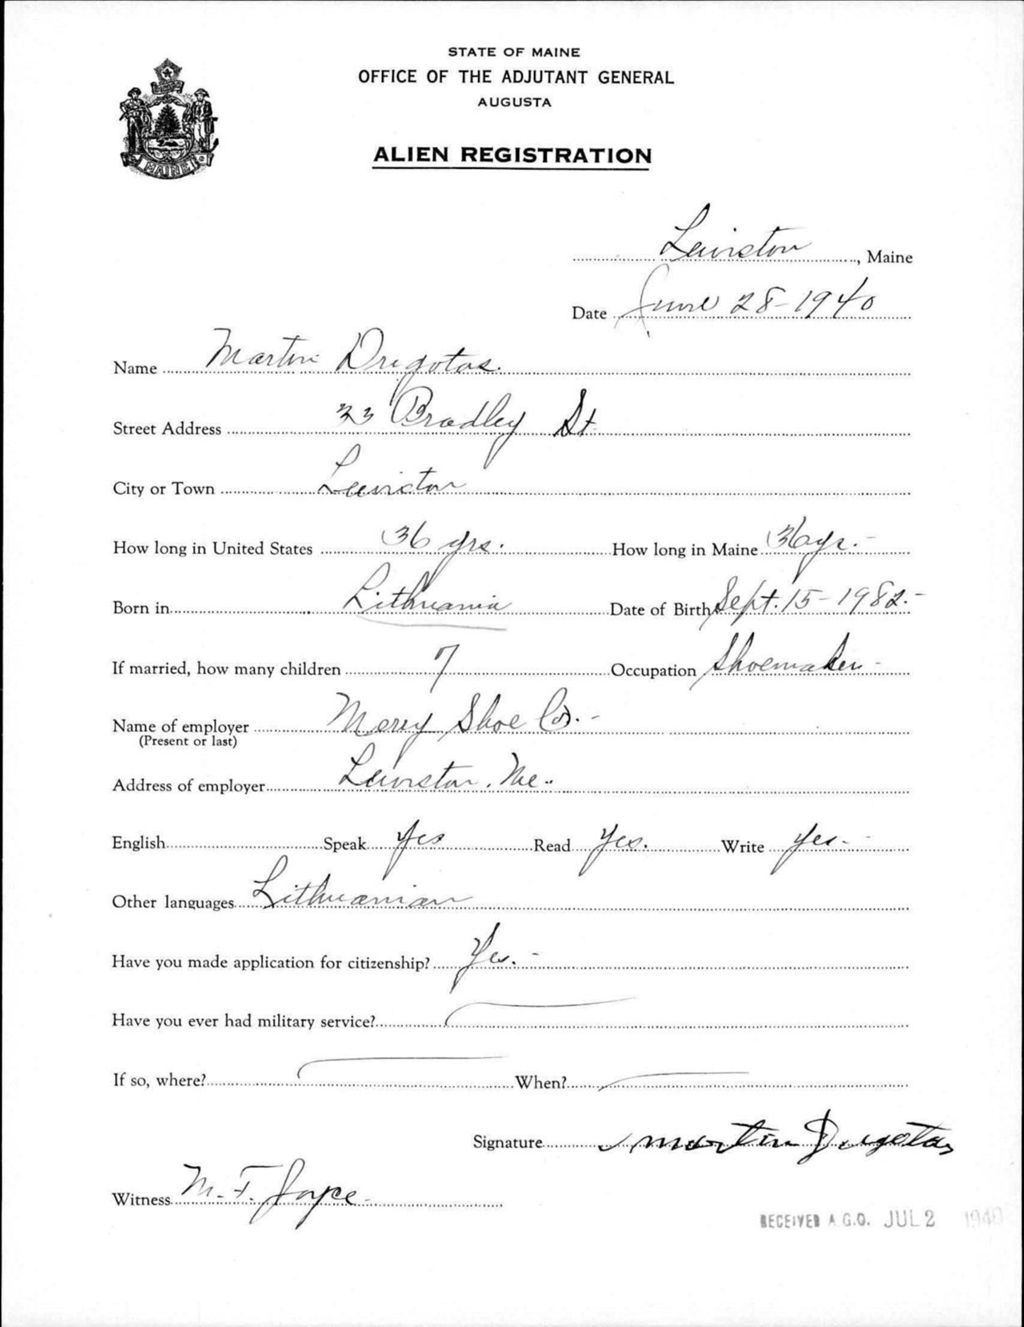 STATE OF MAINE
OFFICE OF THE ADJUTANT GENERAL
AUGUSTA
ALIEN REGISTRATION
MAINE
Lewiston, Maine
Date June 28-1940
Name Martin Drugotas.
Street Address 33 Bradley St
City or Town Lewiston
How long in United States 36 yrs. How long in Maine 36 yr.-
Born in Lithuania Date of Birth Sept. 15-1982.-
If married, how many children 7 Occupation Shoemaker -
Name of employer Shoe Co. -
(Present or last)
Address of employer Lewiston, Me..
English Speak Yes Read Yes. Write Yes.-
Other languages Lithuanian
Have you made application for citizenship? Yes. -
Have you ever had military service?
If so, where? When?
Signature Martin Drugotas
Witness M. F. Joyce -
RECEIVED A.G.O. JUL 2 1940